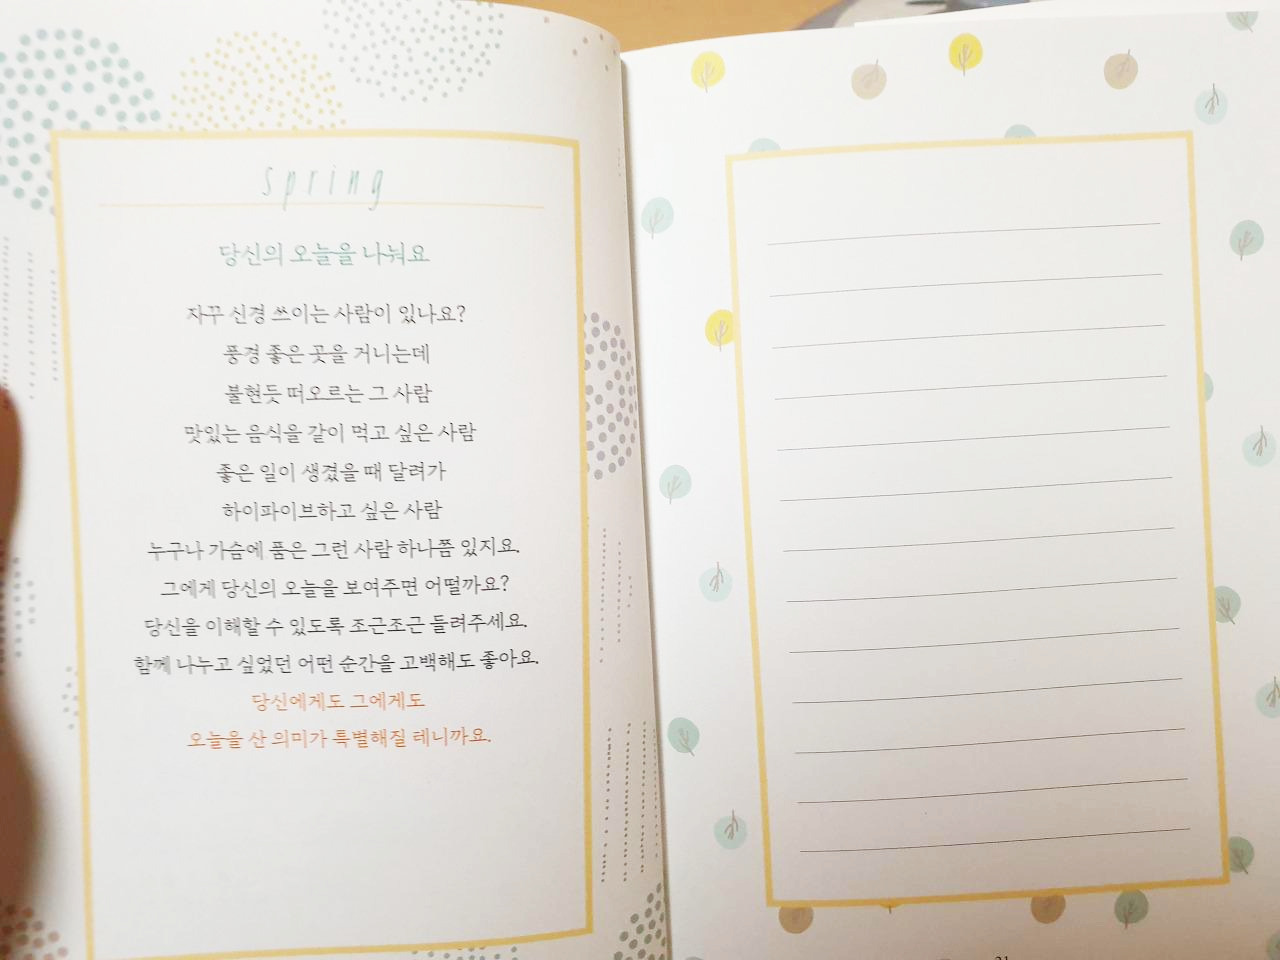 spring
당신의 오늘을 나눠요
자꾸 신경 쓰이는 사람이 있나요?
풍경 좋은 곳을 거니는데
불현듯 떠오르는 그 사람
맛있는 음식을 같이 먹고 싶은 사람
좋은 일이 생겼을 때 달려가
하이파이브하고 싶은 사람
누구나 가슴에 품은 그런 사람 하나쯤 있지요.
그에게 당신의 오늘을 보여주면 어떨까요?
당신을 이해할 수 있도록 조근조근 들려주세요.
함께 나누고 싶었던 어떤 순간을 고백해도 좋아요.
당신에게도 그에게도
오늘을 산 의미가 특별해질 테니까요.